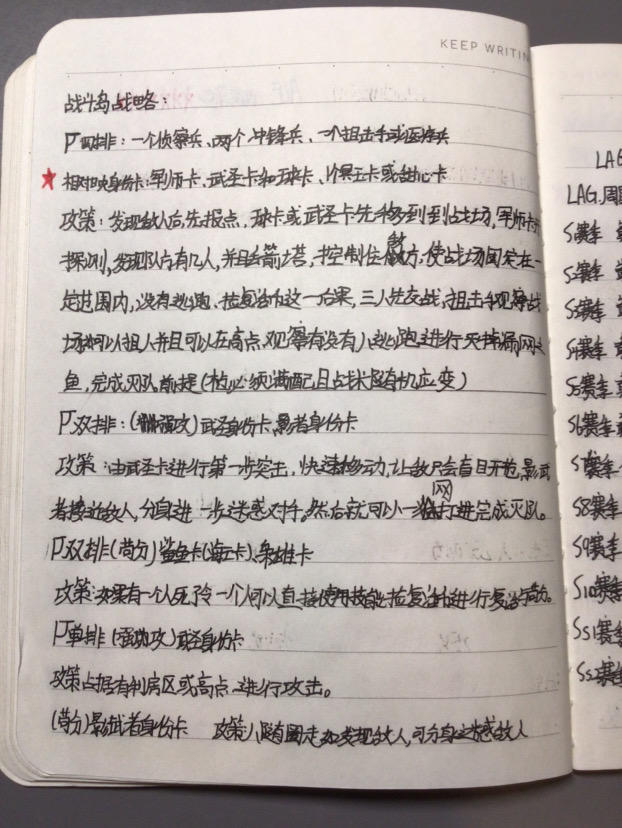 KEEP WRITIN
战斗岛战略：
P四排：一个侦察兵、两个冲锋兵、一个狙击手或医疗兵
相对应身份卡：军师卡、武圣卡和球卡、
政策：发现敌人后先报点，球卡或武圣卡先移到到占场，军师卡
探测，发现队内有几人，并且击箭塔，并控制住敌方，使战场固定在一
定范围内，没有逃跑、拉复活的这一后果，三人先交战，狙击手观察战
场可以狙人并且可以在高点，观察有没有人逃跑进行灭掉漏网之
鱼，完成灭队前提（枪必须满配且战术随机应变）
P双排：（强攻）武圣身份卡，影者身份卡
政策：由武圣卡进行第一步突击，快速移动，让敌只会盲目开枪，影武
者接近敌人，分身进一步迷惑对手。然后就可以一网打进完成灭队。
P双排（苟分）鲨鱼卡（海王卡）、枭雄卡
政策：如果有一个人死了令一个人可以直接使用技能拉复活的进行复活与苟。
P单排（强攻）武圣身份卡
政策占据有利房区或高点进行攻击。
（苟分）影武者身份卡 政策：随圈走如发现敌人，可分身迷惑敌人
LAG
LAG.周
S赛季
S赛季
S赛季
S4赛季
S5赛季
S6赛季
S7赛季
S8赛季
S9赛季
S10赛季
SS1赛季
SS2赛季